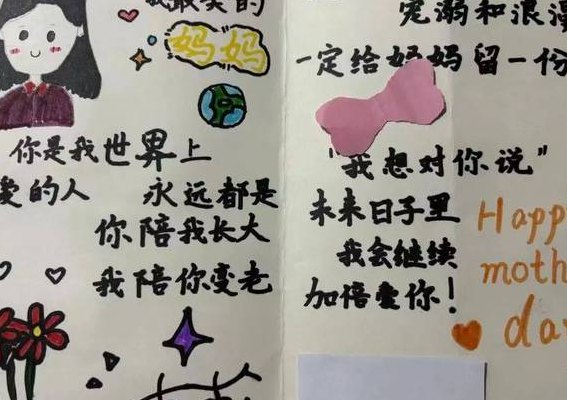 我最美的
妈妈
你是我世界上
爱的人
永远都是
你陪我长大
我陪你变老
宠溺和浪漫
一定给妈妈留一份
"我想对你说"
未来日子里
我会继续
加倍爱你！
Happy
moth
day